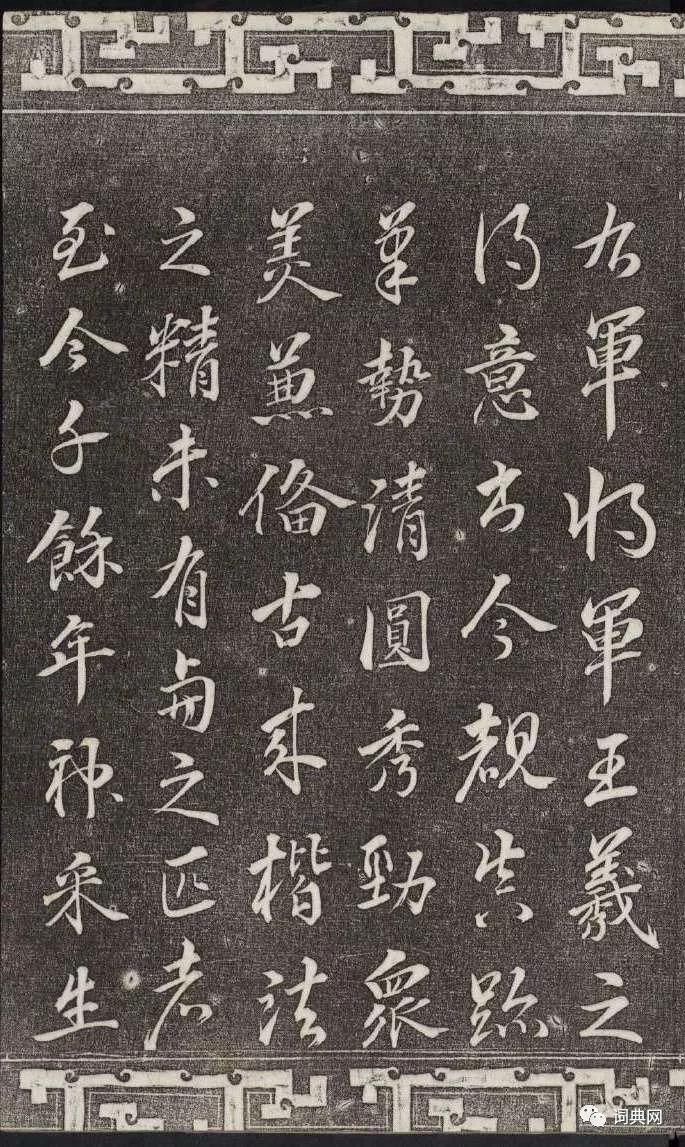 右軍將軍王羲之
得意書今覩真跡
筆勢清圓秀勁衆
美兼備古來楷法
之精未有與之匹者
至今千餘年神采生
词典网